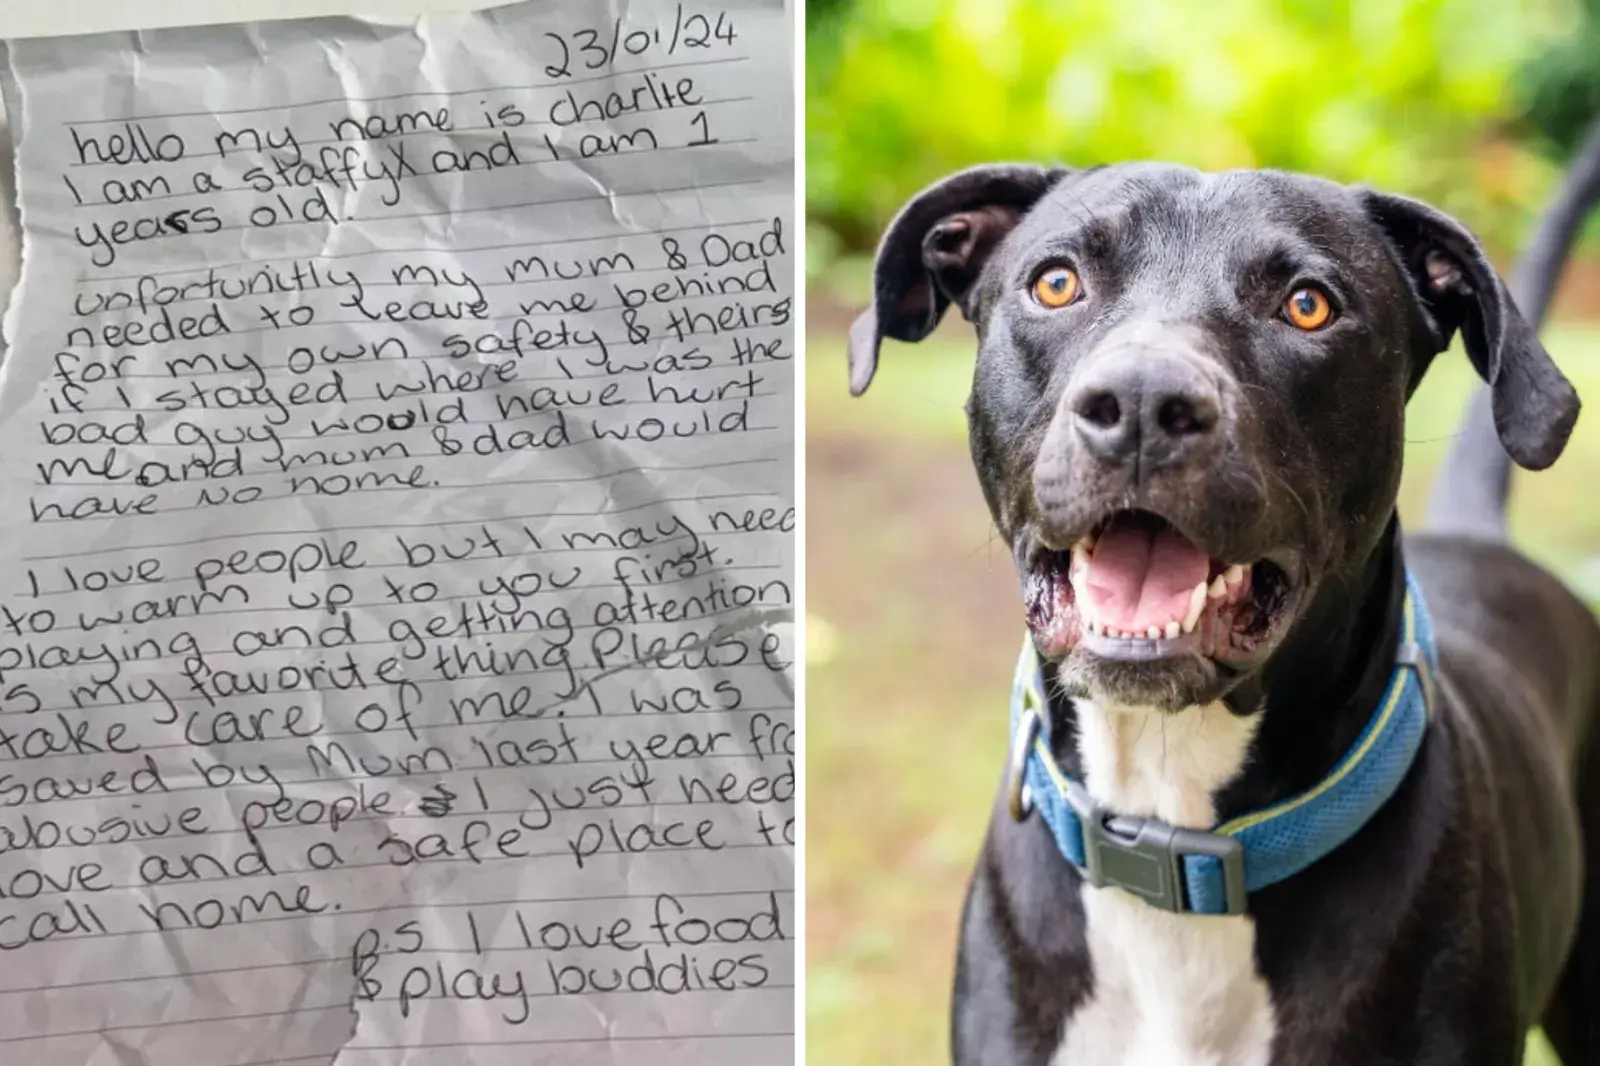 23/01/24
hello my name is charlie
I am a staffyX and I am 1
years old.
unfortunitly my mum & Dad
needed to leave me behind
for my own safety & theirs
if I stayed where I was the
bad guy would have hurt
me and mum & dad would
have no home.
I love people but I may need
to warm up to you first.
playing and getting attention
s my favorite thing. Please
take care of me. I was
saved by Mum last year fro
abusive people. I just need
love and a safe place to
call home.
P.S I love food
& play buddies